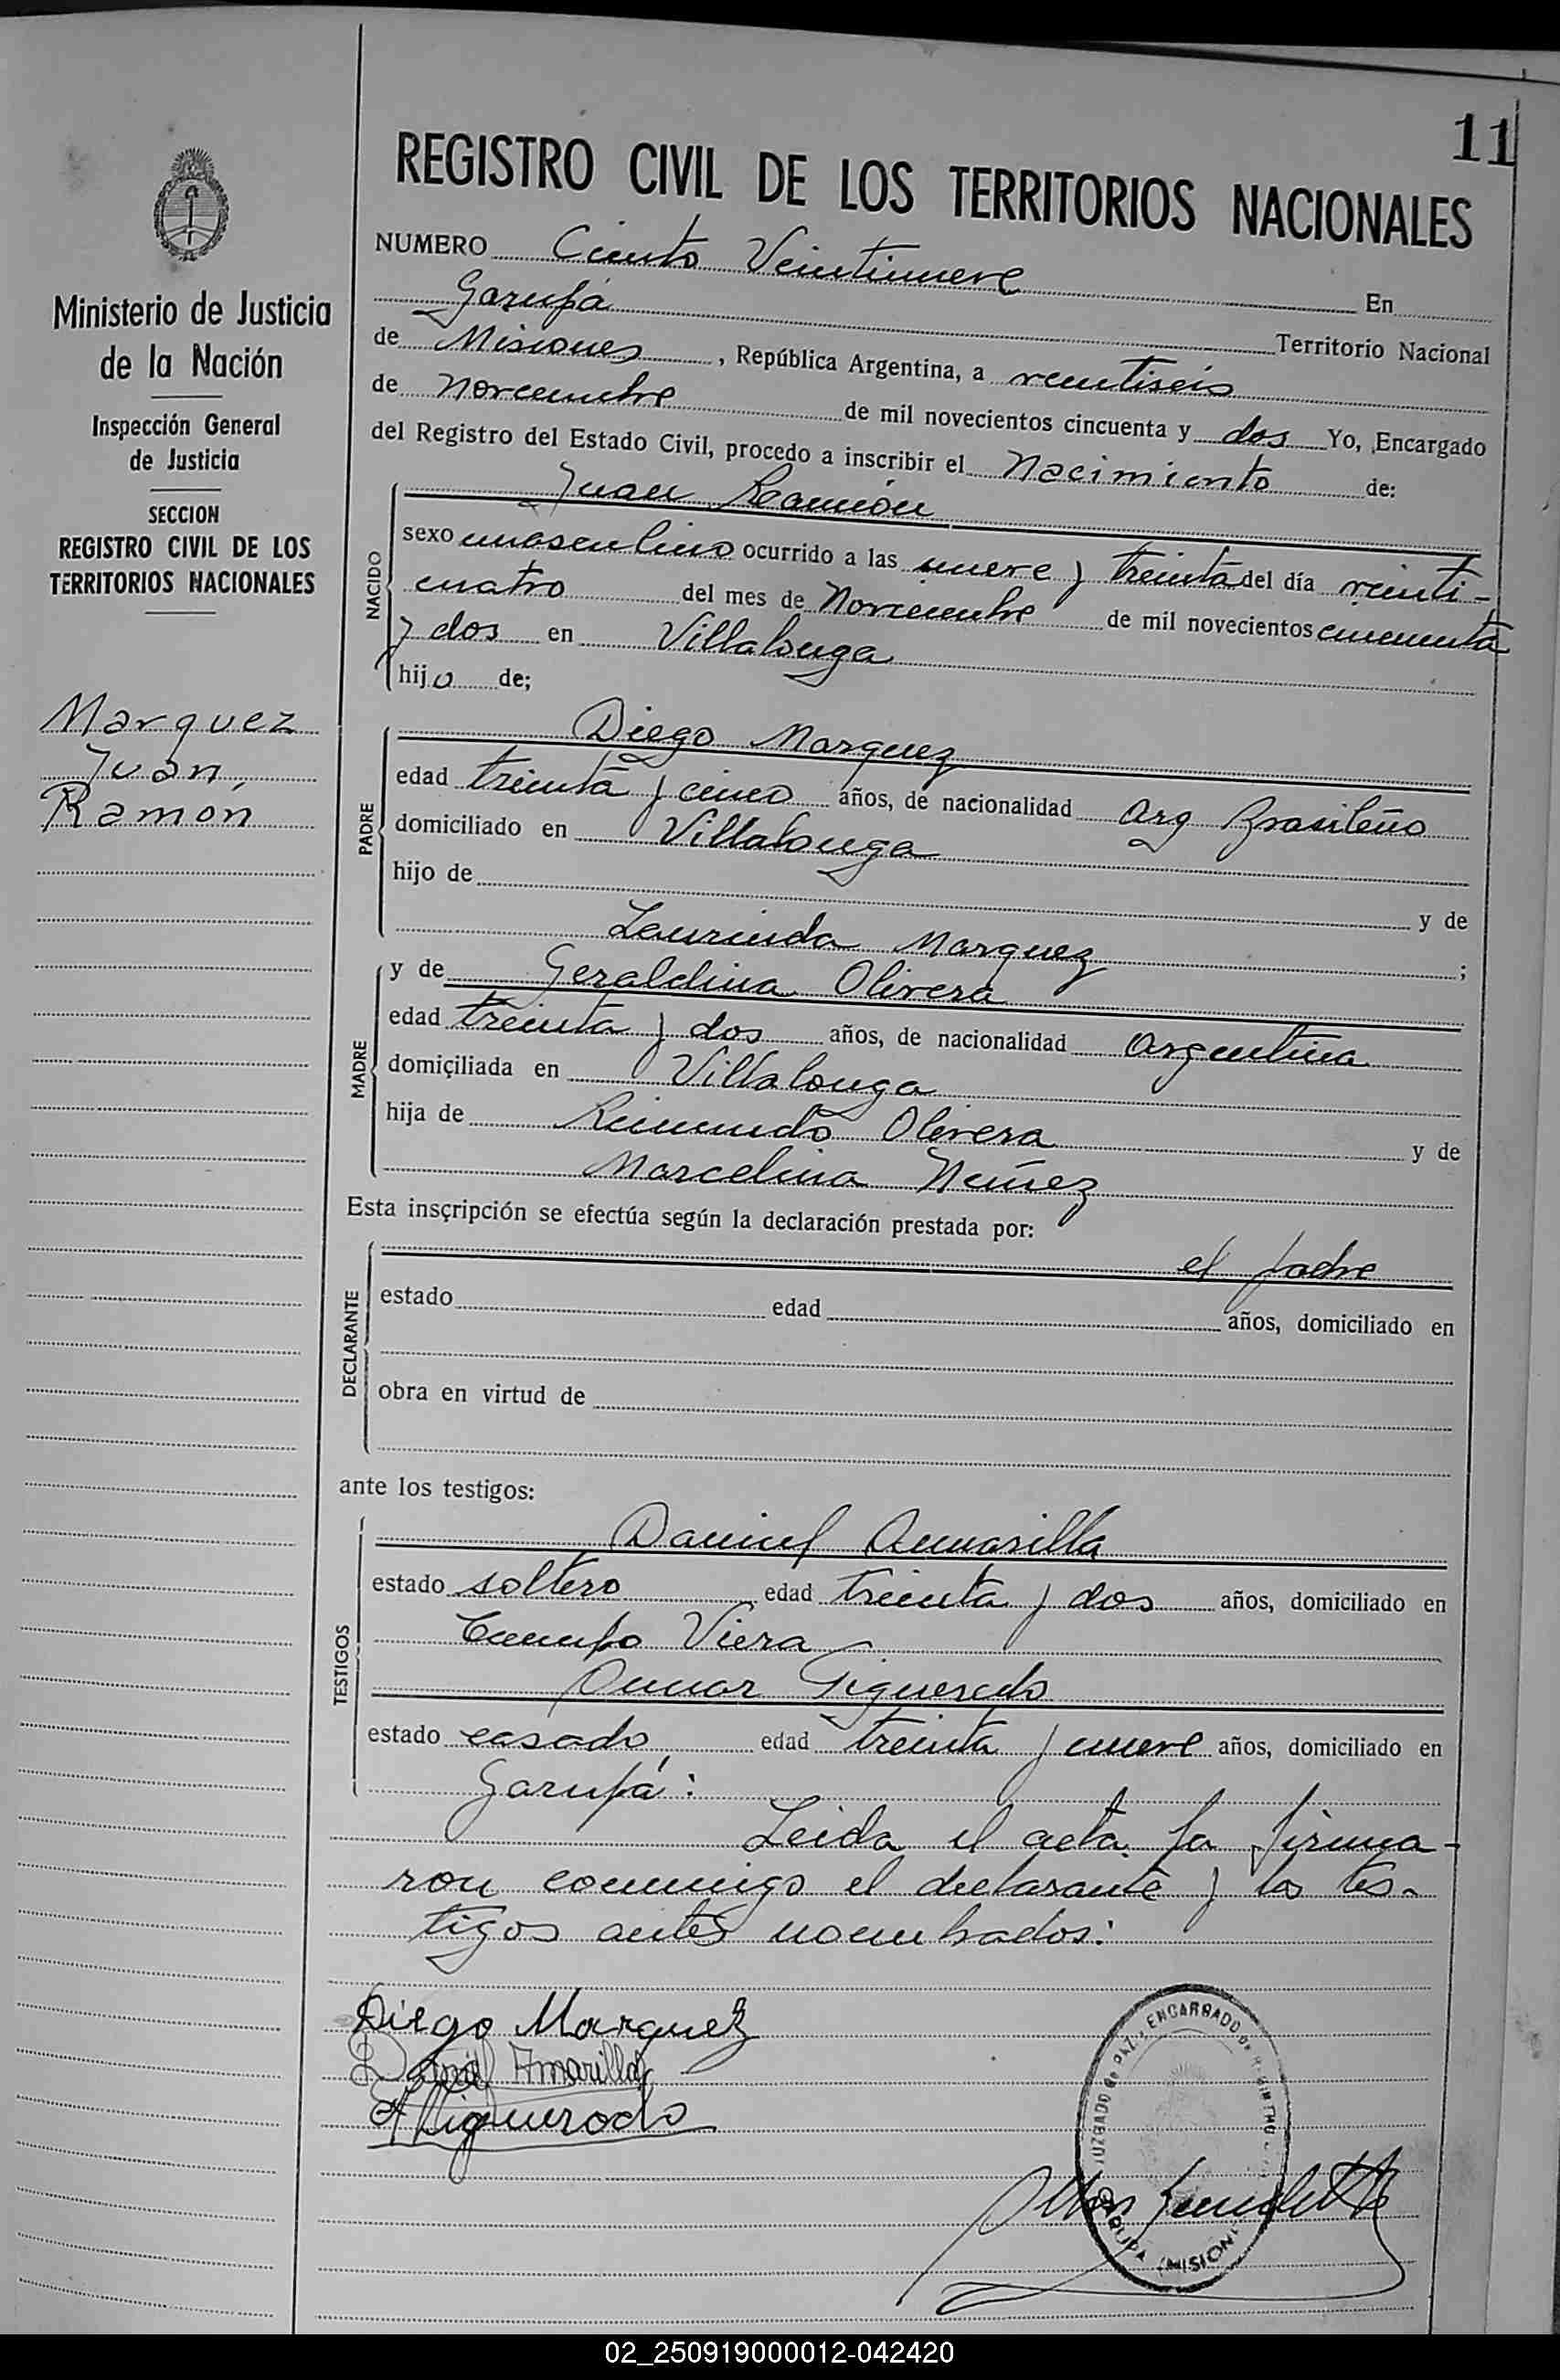 11
REGISTRO CIVIL DE LOS TERRITORIOS NACIONALES
Ministerio de Justicia
de la Nación
Inspección General
de Justicia
SECCION
REGISTRO CIVIL DE LOS
TERRITORIOS NACIONALES
Marquez
Juan,
Ramón
NUMERO Ciento Veintinueve En
Garupá Territorio Nacional
de Misiones, República Argentina, a veintiseis
de Noviembre de mil novecientos cincuenta y dos Yo, Encargado
del Registro del Estado Civil, procedo a inscribir el Nacimiento de:
NACIDO
Juan Ramón
sexo masculino ocurrido a las nueve y treinta del día veinti-
cuatro del mes de Noviembre de mil novecientos cincuenta
y dos en Villalonga
hijo de;
PADRE
Diego Marquez
edad treinta y cinco años, de nacionalidad Arg Brasileño
domiciliado en Villalonga
hijo de y de
Laurinda Marquez ;
MADRE
y de Geraldina Olivera
edad treinta y dos años, de nacionalidad Argentina
domiciliada en Villalonga
hija de Reimundo Olivera y de
Marcelina Nuñez
Esta inscripción se efectúa según la declaración prestada por:
DECLARANTE
el padre
estado edad años, domiciliado en
obra en virtud de
ante los testigos:
TESTIGOS
Daniel Amarilla
estado soltero edad treinta y dos años, domiciliado en
Campo Viera
Omar Figueredo
estado casado, edad treinta y nueve años, domiciliado en
Garupá:
Leida el acta la firma-
ron conmigo el declarante y los tes-
tigos antes nombrados:
Diego Marquez
Daniel Amarilla
Figueredo
JUZGADO de PAZ y ENCARGADO
GARUPA (MISIONES
02_250919000012-042420